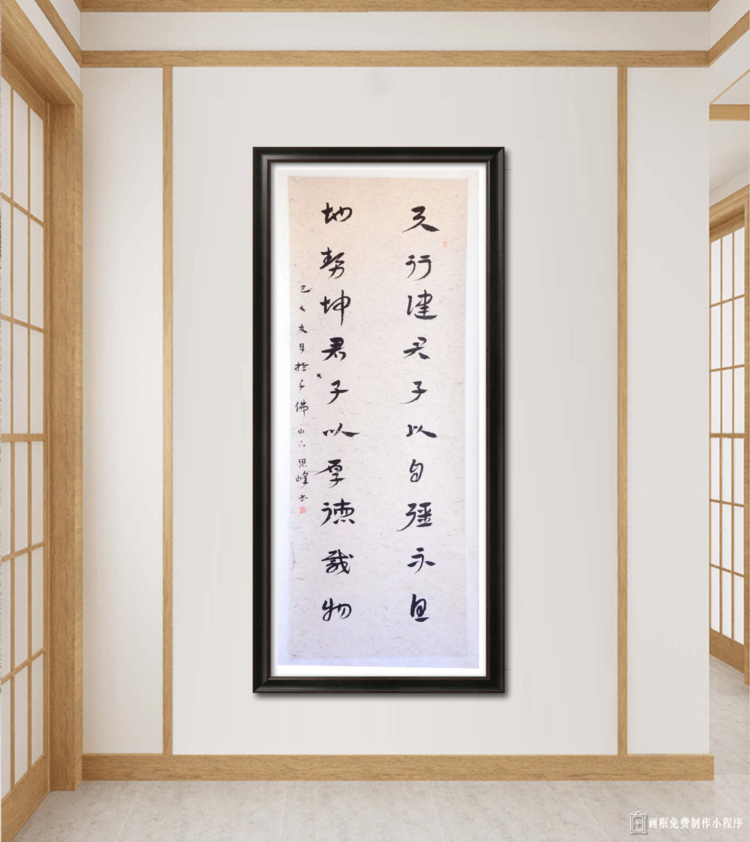 天行健君子以自强不息
地势坤君子以厚德载物
己亥友月於千佛山下思峰书
画框免费制作小程序